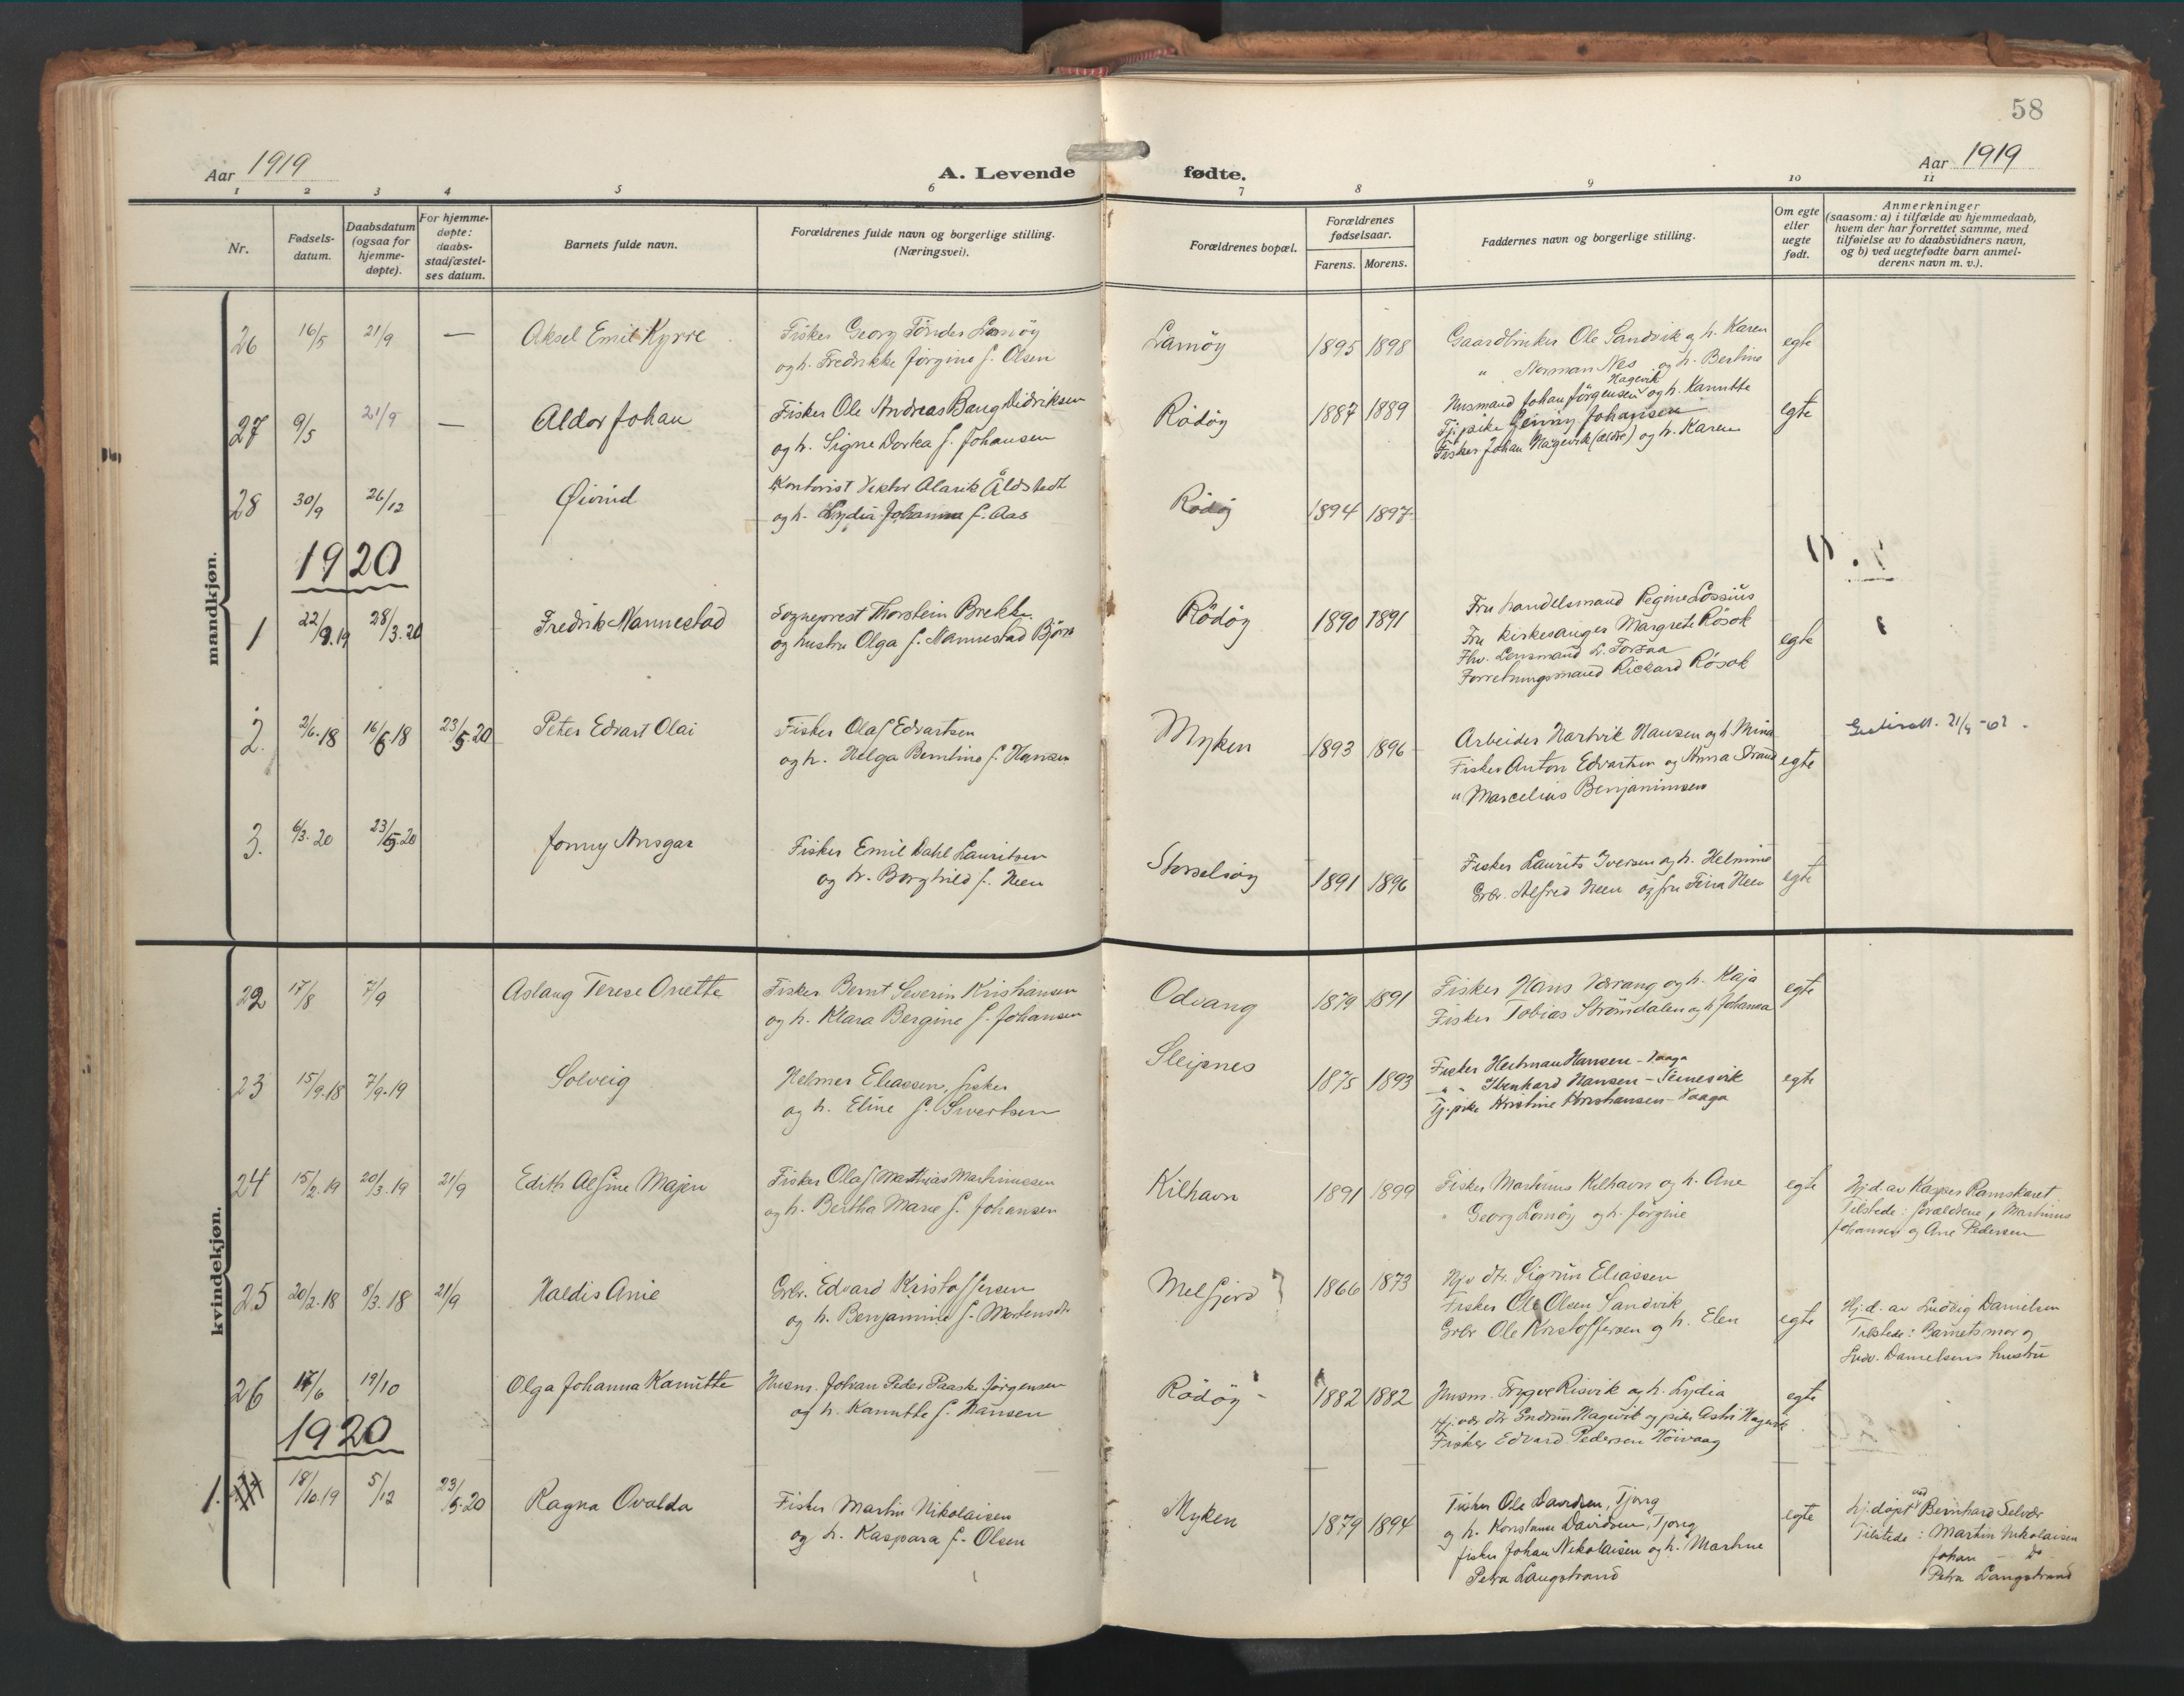 58
Aar 1919
A. Levende fødte.
Aar 1919
1 2 3 4 5 6 7 8 9 10 11
Nr.
Fødsels-
datum.
Daabsdatum
(ogsaa for
hjemme-
døpte).
For hjemme-
døpte:
daabs-
stadfæstel-
ses datum.
Barnets fulde navn.
Forældrenes fulde navn og borgerlige stilling.
(Næringsvei).
Forældrenes bopæl.
Forældrenes
fødselsaar.
Farens. Morens.
Faddernes navn og borgerlige stilling.
Om egte
eller
uegte
født.
Anmerkninger
(saasom: a) i tilfælde av hjemmedaab,
hvem der har forrettet samme, med
tilføielse av to daabsvidners navn,
og b) ved uegtefødte barn anmel-
derens navn m. v.).
mandkjøn.
26 16/5 21/9 — Aksel Emil Kyrre
Fisker Georg Tönder Lamöy
og h. Fredrikke Jörgine f. Olsen
Lamöy 1895 1898
Gaardbruker Ole Sandvik og h. Karen
" Norman Nes og h. Bertine
egte
27 9/5 21/9 — Aldor Johan
Fisker Ole Andreas Bang Didriksen
og h. Signe Dorka f. Johansen
Rödöy 1887 1889
Hagevik
Husmand Johan Jörgensen og h. Kanutte
Tj.pike Jenny Johansen
Fisker Johan Hagevik (ældre) og h. Karen
egte
28 30/9 26/12 Øivind
Kontorist Viktor Alarik Åldstedt
og h. Lydia Johanna f. Aas
Rödöy 1894 1897
1920
1 22/9.19 28/3.20 Fredrik Nannestad
Sogneprest Thorstein Brekke
og hustru Olga f. Nannestad Björn
Rödöy 1890 1891
Fru handelsmand Regine Lossius
Fru kirkesanger Margrete Rösok
Fhv. Lensmand L. Forsaa
Forretningsmand Rickard Rösok
egte
2. 2/6.18 16/6.18 23/5.20 Peter Edvart Olai
Fisker Olaf Edvartsen
og h. Helga Berntine f. Hansen
Myken 1893 1896
Arbeider Hartvik Hansen og h. Mina
Fisker Anton Edvartsen og Anna Strand
" Marcelius Benjaminsen
egte
3. 6/3.20 23/5.20 Jonny Ansgar
Fisker Emil Dahl Lauritsen
og h. Borghild f. Heen
Storselsöy 1891 1896
Fisker Laurits Iversen og h. Helmine
Grbr. Alfred Heen og fru Fina Heen
egte
kvindekjøn.
22 17/8 7/9 Aslaug Terese Onette
Fisker Bernt Severin Kristiansen
og h. Klara Bergine f. Johansen
Odvang 1879 1891
Fisker Hans Værang og h. Kaja
Fisker Tobias Strömdalen og h Johanna
egte
23 15/9.18 7/9.19 Solveig
Helmer Eliassen, fisker
og h. Eline f. Sivertsen
Sleipnes 1875 1893
Fisker Heitman Hansen – Vaaga
" " Hansen – Selnesvik
Tj.pike Kristine Kristiansen – Vaaga
egte
24 15/2.19 20/3.19 21/9 Edith Alfine Majen
Fisker Olaf Matthias Martinussen
og h. Bertha Marie f. Johansen
Kilhavn 1891 1899
Fisker Martinus Kilhavn og h. Ane
" Georg Lamöy og h. Jörgine
egte
Hj.d. av Kasper Ramskaret
Tilstede: forældrene, Martinus
Johansen og Ane Pedersen
25 20/2.18 8/3.18 21/9 Haldis Anie
Grbr. Edvard Kristoffersen
og h. Benjamine f. Mortensdtr
Melfjord 1866 1873
Hjv dtr. Sigrun Eliassen
Fisker Ole Olsen Sandvik
Grbr Ole Kristoffersen og h. Elen
egte
Hj.d. av Ludvig Danielsen
Tilstede: Barnets mor og
Ludv. Danielsens hustru
26 17/6 19/10 Olga Johanna Kanutte
Husm. Johan Peder Paaske Jörgensen
og h. Kanutte f. Hansen
Rödöy – 1882 1882
Husm. Trygve Risvik og h. Lydia
Hj.vær dtr Gudrun Hagevik og pike Astri Hagevik
Fisker Edvard Pedersen Höivaag
egte
1920
1. 18/10.19 5/12 23/5.20 Ragna Ovalda
Fisker Martin Nikolaisen
og h. Kaspara f. Olsen
Myken 1879 1894
Fisker Ole Davidsen, Tjong
og h. Konstanse Davidsen, Tjong
fisker Johan Nikolaisen og h. Martine
Petra Langstrand
egte
hj.döpt ved Bernhard Selvær
Tilstede: Martin Nikolaisen
Johan — Do —
Petra Langstrand